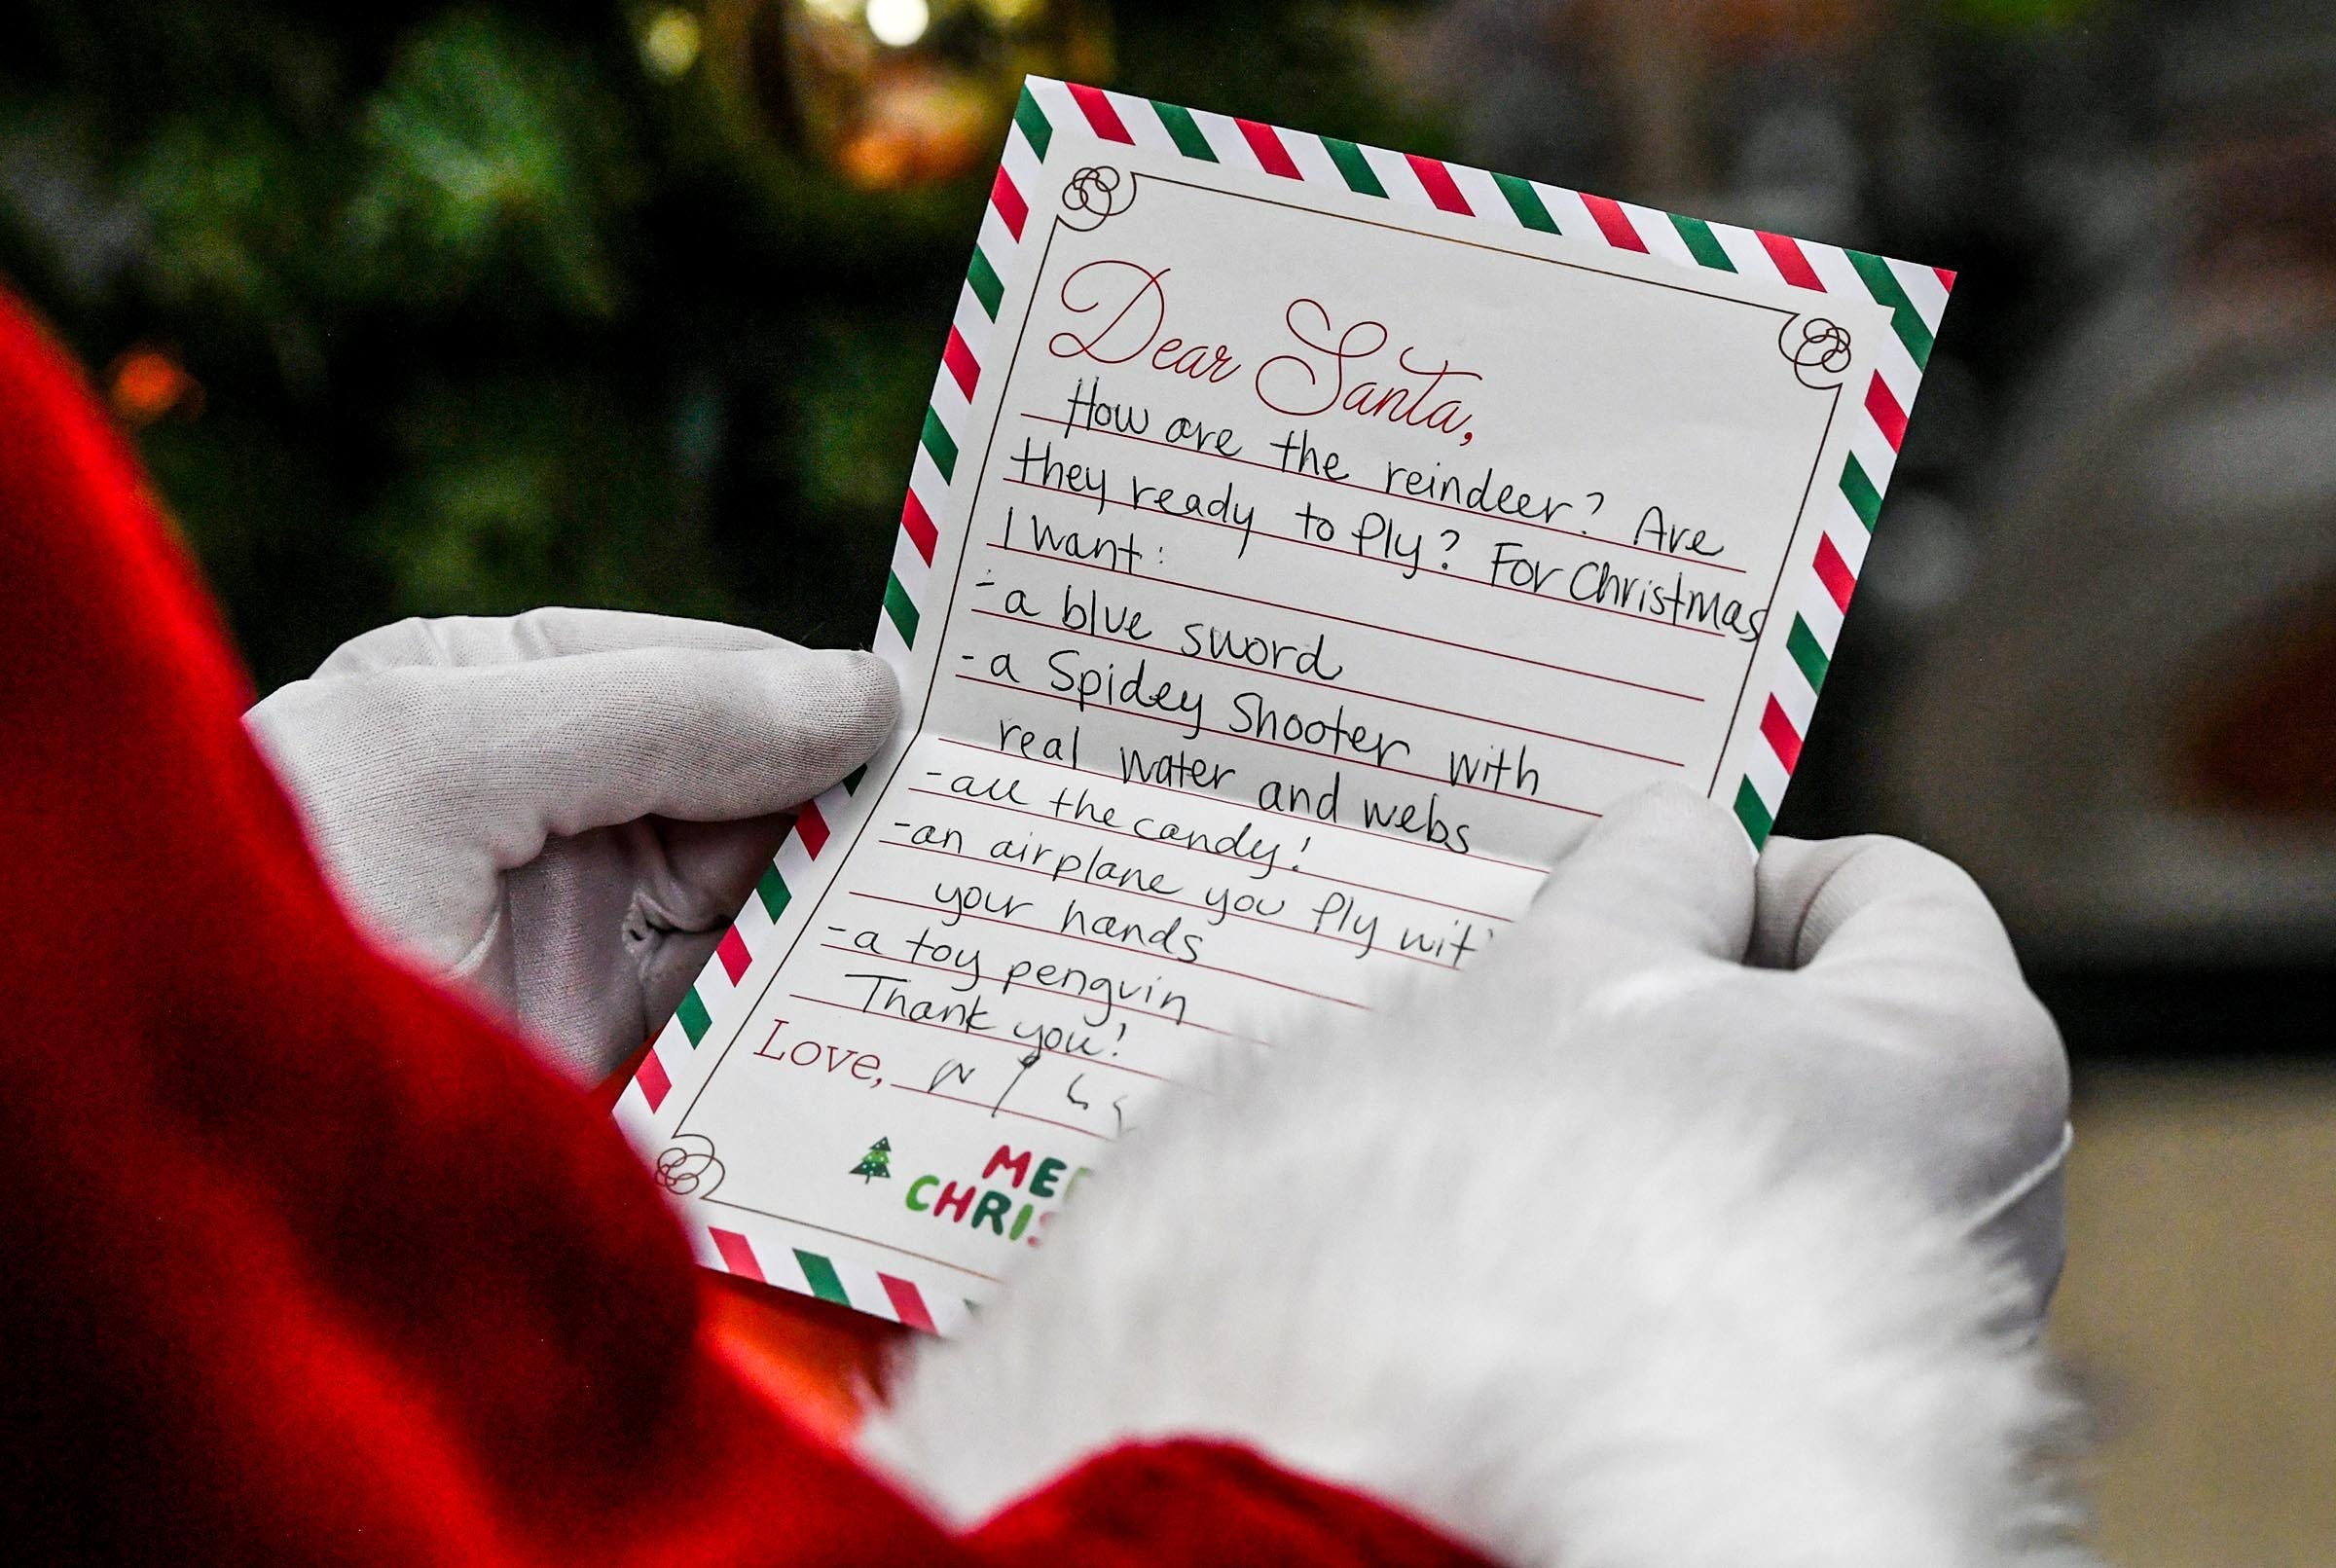 Dear Santa,
How are the reindeer? Are
they ready to fly? For Christmas
I want:
- a blue sword
- a Spidey Shooter with
real water and webs
- all the candy!
- an airplane you fly
your hands
- a toy penguin
Thank you!
Love,